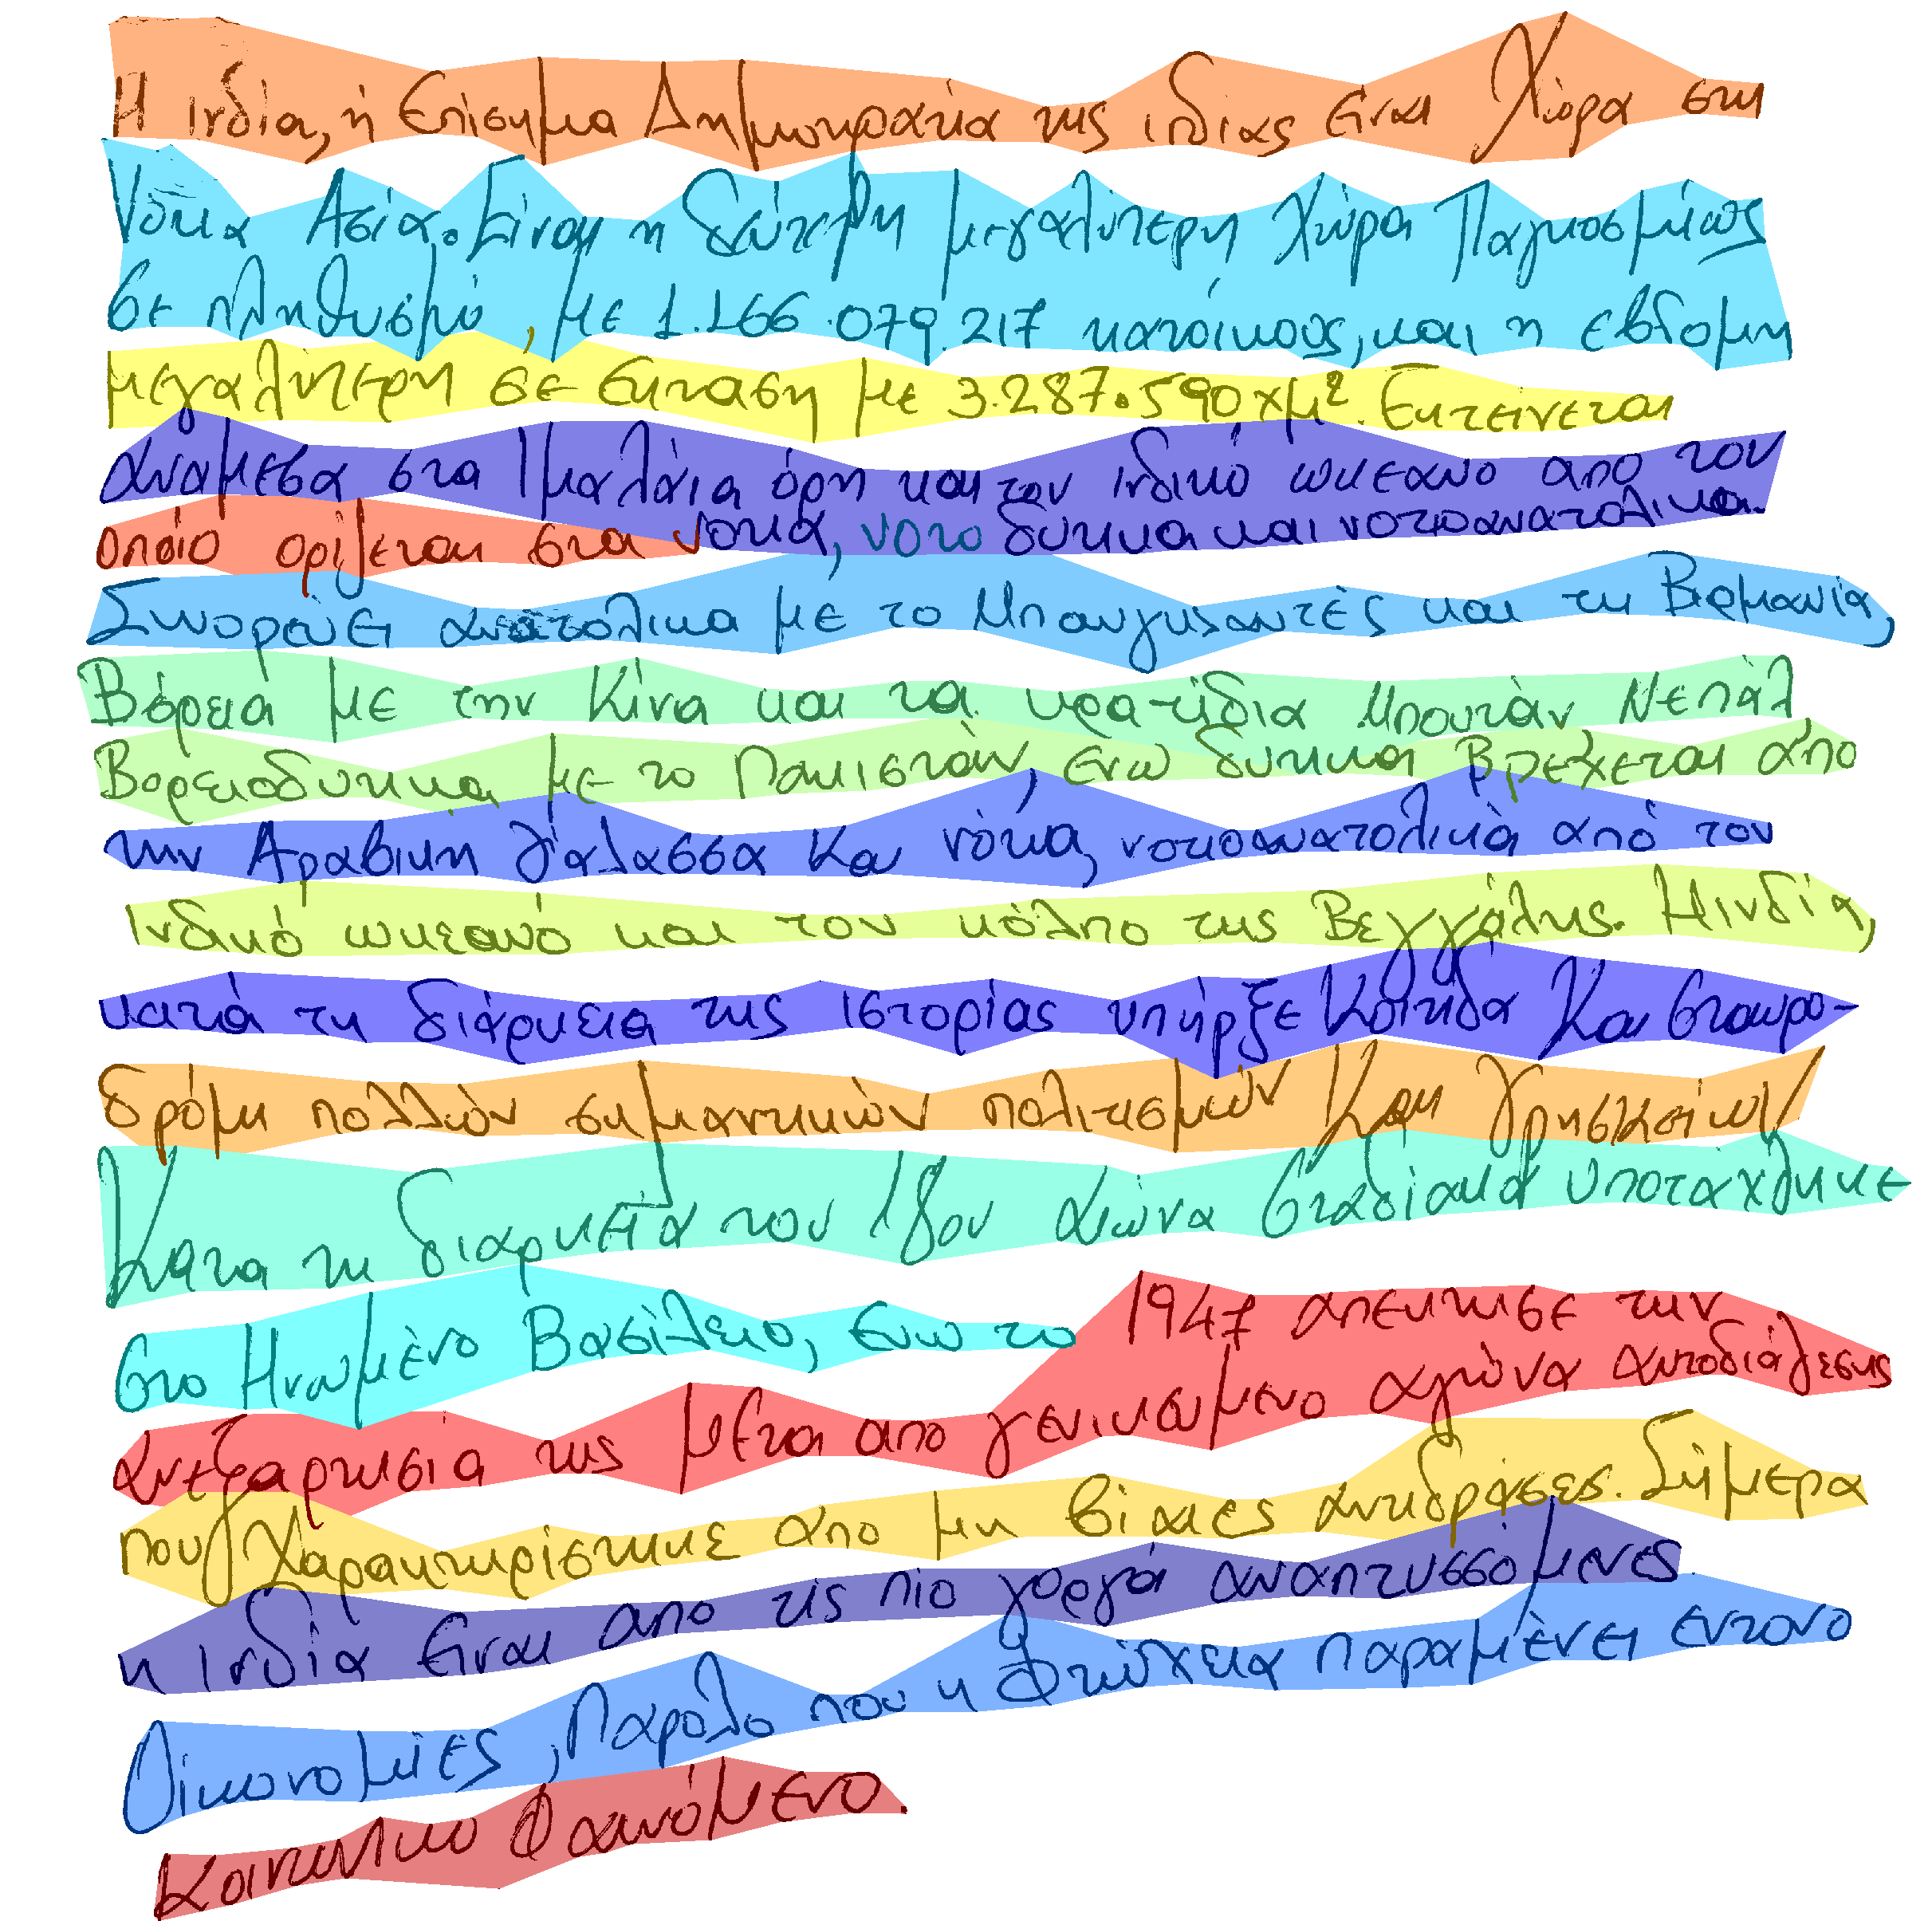 Η ινδία, ή Επίσημα Δημοκρατία της ινδιας είναι Χώρα στη
Νότια Ασία. Είναι η δεύτερη μεγαλύτερη Χώρα Παγκοσμίως
σε πληθυσμό, με 1.166.079.217 κατοίκους, και η εβδομη
μεγαλύτερη σε έκταση με 3.287.590 χμ². Εκτείνεται
Ανάμεσα στα Ιμαλάια όρη και τον ινδικό ωκεανο απο τον
οποίο ορίζεται στα νοτια, νοτο δυτικα και νοτιοανατολικα.
Συνορεύει ανατολικα με το Μπανγκλαντές και τη Βιρμανία,
Βόρεια με την Κίνα και τα κρατίδια Μπουτάν Νεπάλ
Βορειοδυτικα με το Πακιστάν, ενω δυτικα Βρέχεται άπο
την Αραβική θάλασσα Και νότια, νοτιοανατολικά από τον
Ινδικό ωκεανό και τον κόλπο της Βεγγάλης. Η ινδία,
κατά τη διάρκεια της ιστορίας υπήρξε Κοιτίδα Και σταυρο-
δρόμι πολλών σημαντικών πολιτισμών Και θρησκειών
Κατα τη διαρκεία του 18ου Αιώνα σταδιακά υποτάχθηκε
στο Ηνωμένο Βασίλειο, ενω το 1947 απέκτησε την
Ανεξαρτησία της μετα απο γενικευμενο αγώνα αυτοδιάθεσης
που Χαρακτηρίστηκε απο μη βίαιες αντιδράσεις. Σήμερα
η Ινδία Είναι απο τις πιο γοργά αναπτυσσόμενες
Οικονομίες, Παρολο που η Φτώχεια παραμένει εντονο
Κοινωνικο Φαινόμενο.